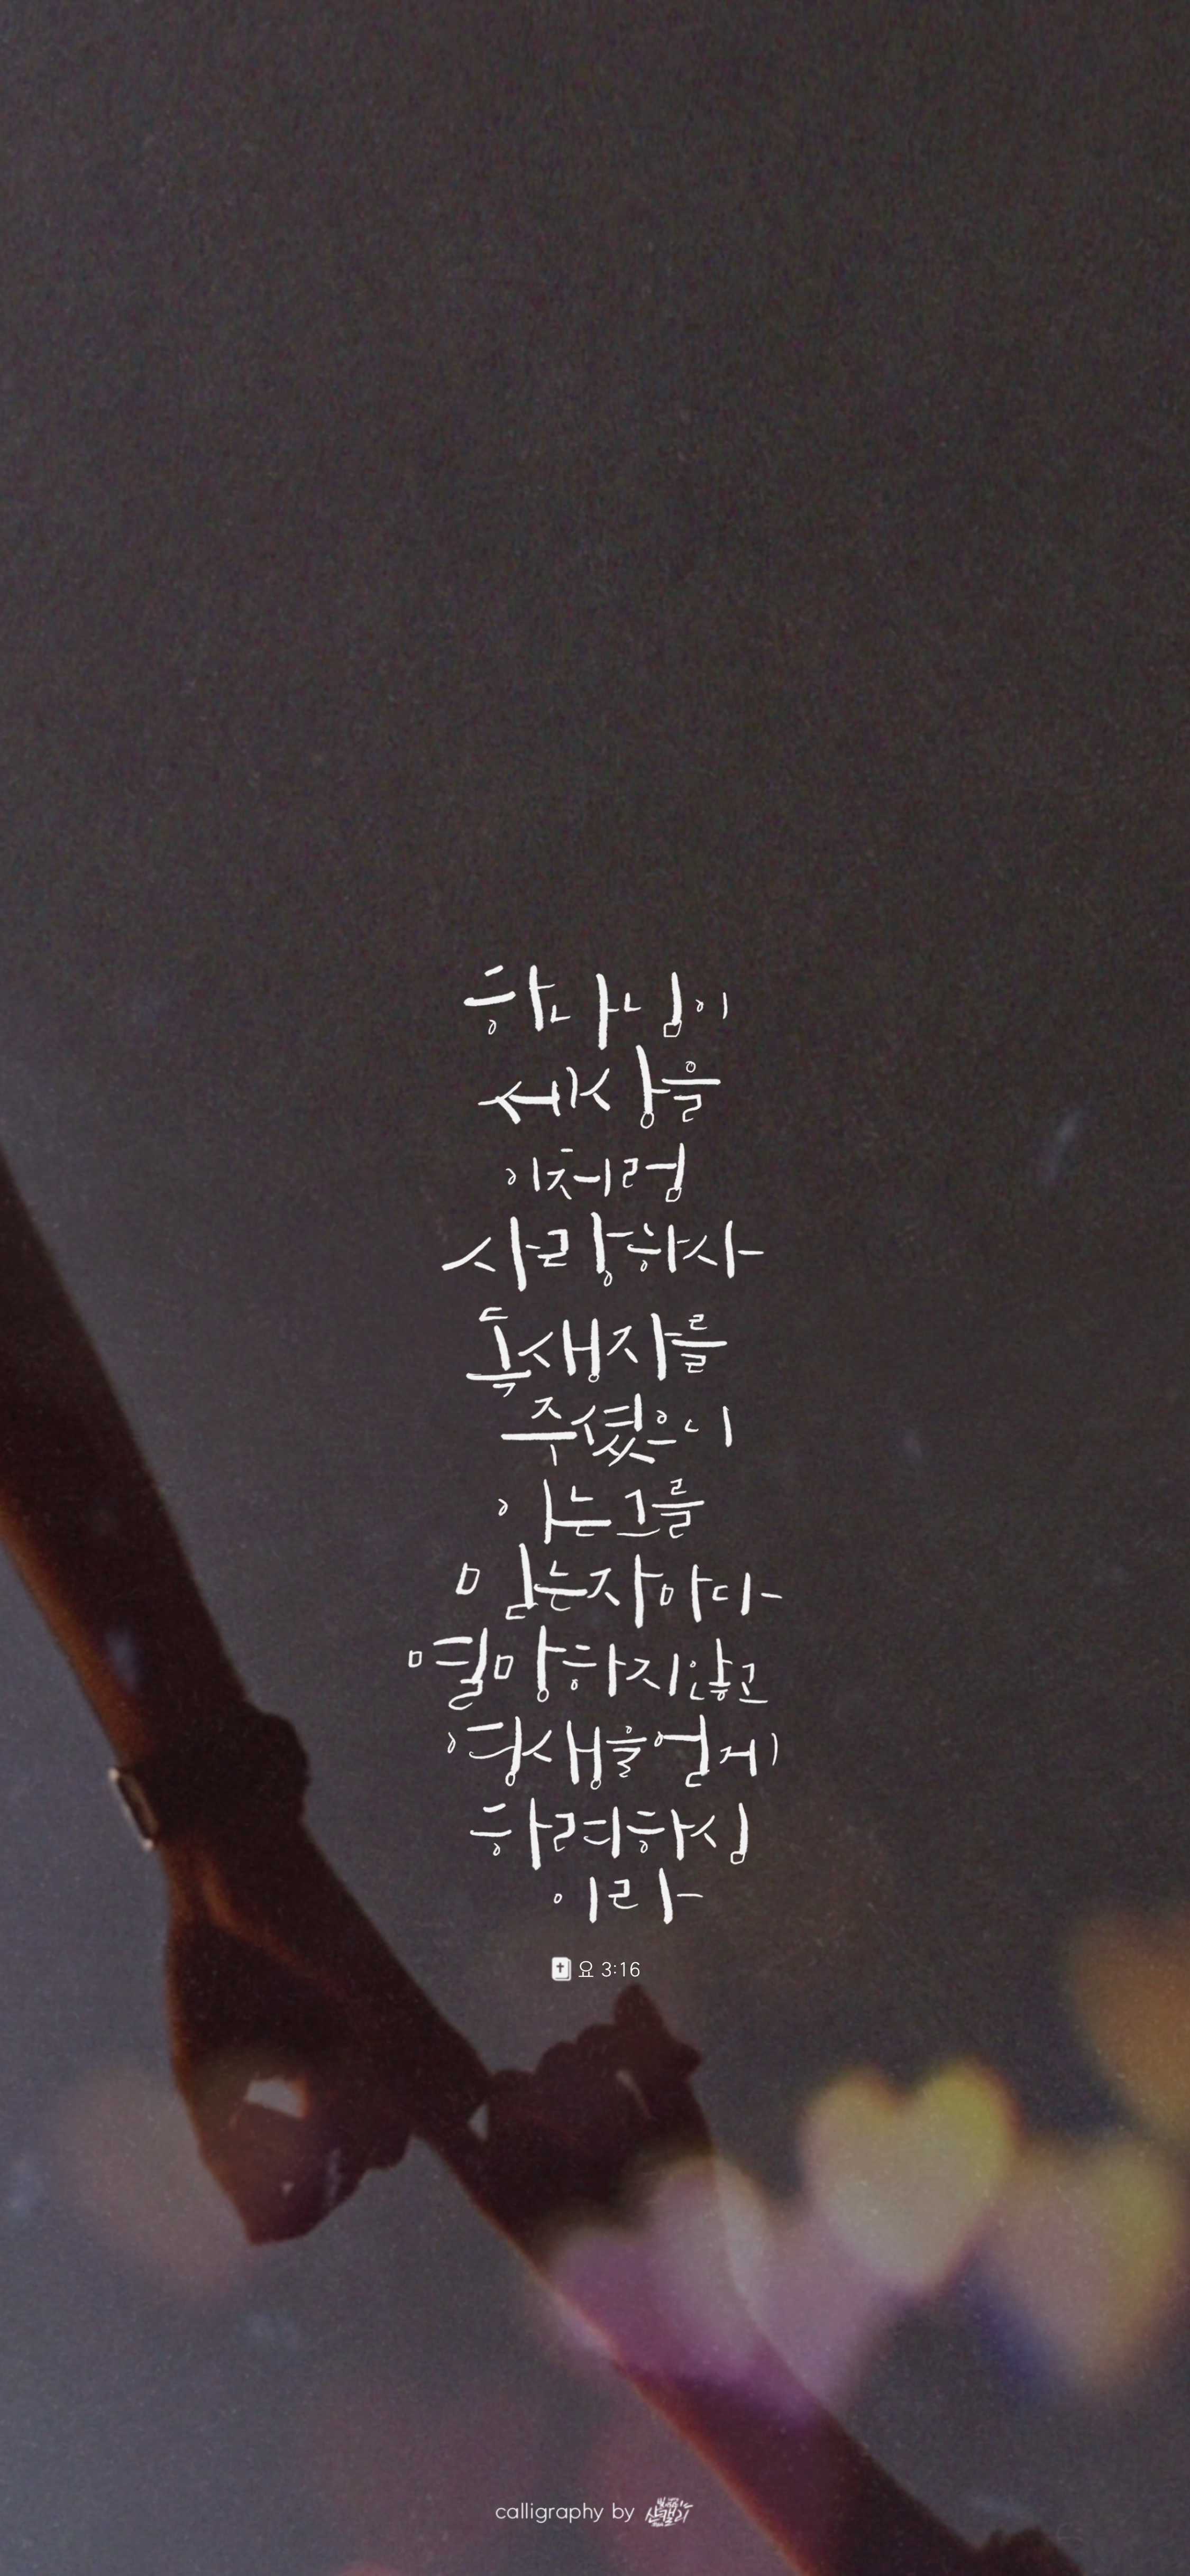 하나님이
세상을
이처럼
사랑하사
독생자를
주셨으니
이는 그를
믿는 자마다
멸망하지 않고
영생을 얻게
하려 하심
이라
요 3:16
calligraphy by